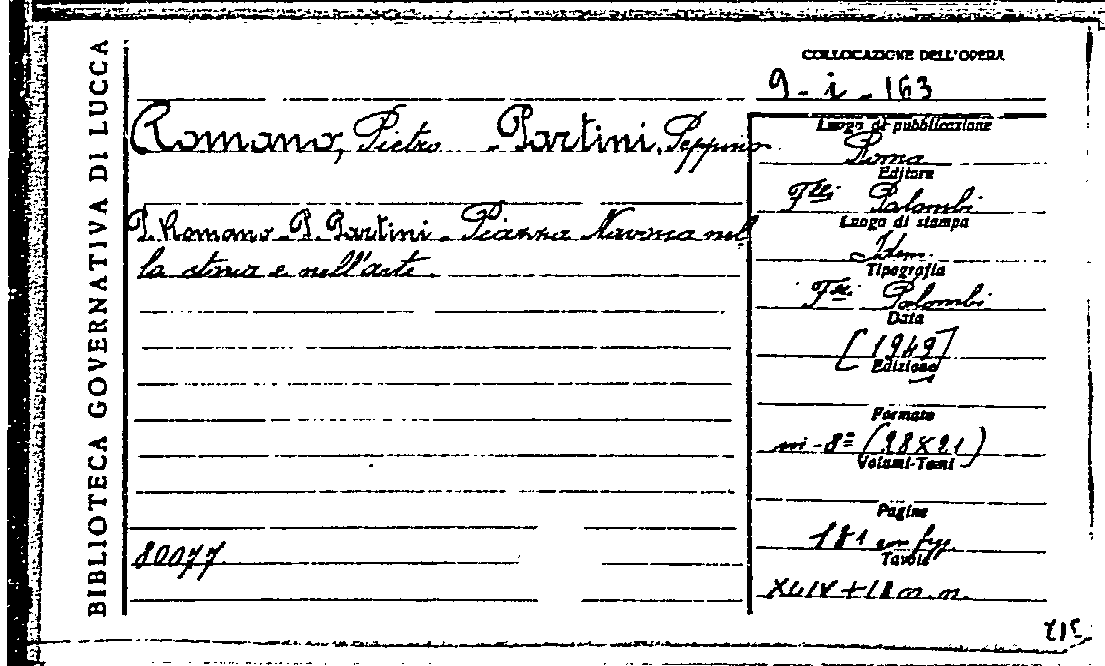 BIBLIOTECA GOVERNATIVA DI LUCCA
COLLOCAZIONE DELL'OPERA
9 - i - 163
Romano, Pietro - Partini, Peppino
P. Romano - P. Partini - Piazza Navona nel
la storia e nell'arte.
80077
Luogo di pubblicazione
Roma
Editore
F.lli Palombi
Luogo di stampa
Idem
Tipografia
F.lli Palombi
Data
[1949]
Edizione
Formato
in-8º (28X21)
Volumi-Tomi
Pagine
181 con fig.
Tavole
XLIV + 18 n. n.